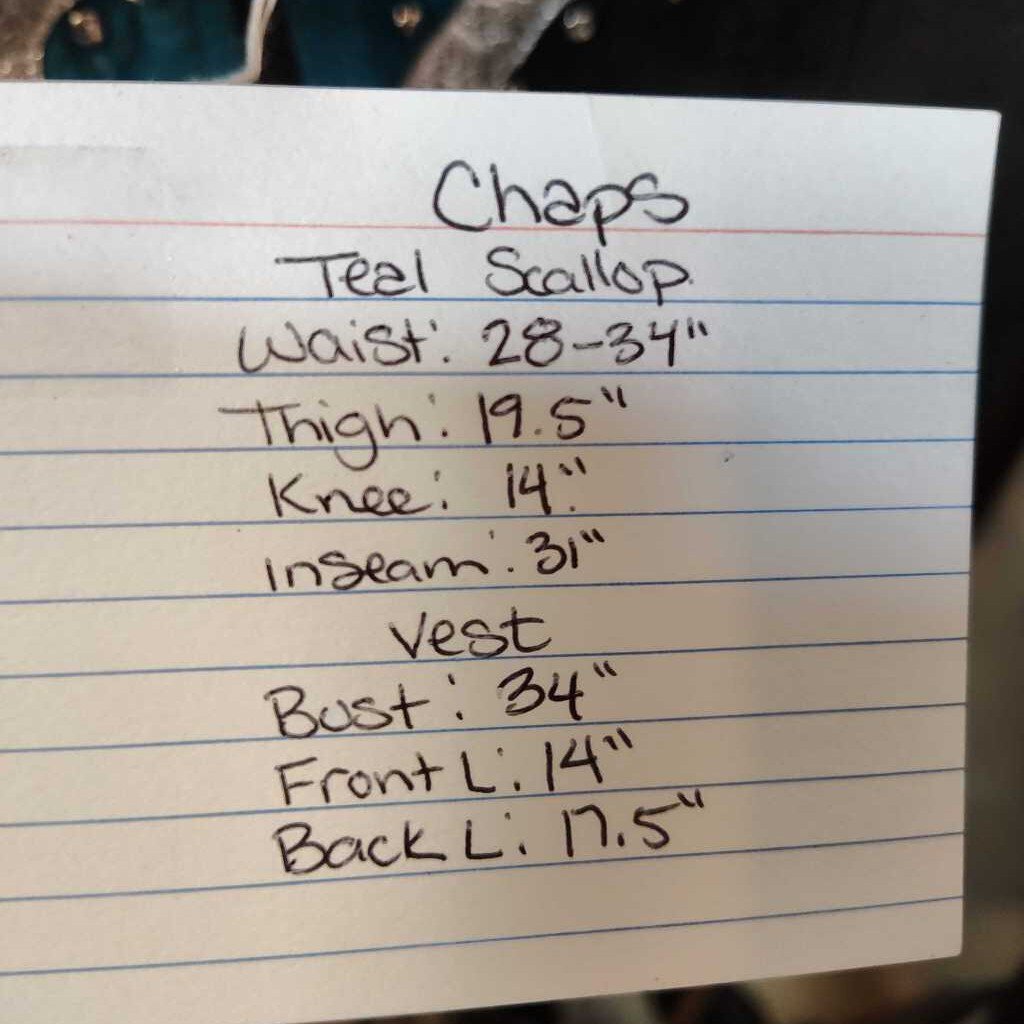 Chaps
Teal Scallop
Waist: 28-34"
Thigh: 19.5"
Knee: 14"
inseam: 31"
Vest
Bust: 34"
Front L: 14"
Back L: 17.5"